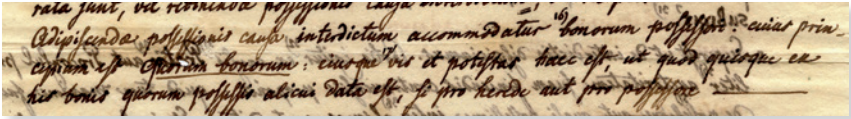 rata sunt, vel retinendae possessionis causa
Adipiscendae possessionis causa interdictum accommodatur 16) bonorum possessori: cuius prin-
cipium est Quorum bonorum: eiusque 17) vis et potestas haec est, ut quod quisque ex
his bonis quorum possessio alicui data est, si pro herede aut pro possessore